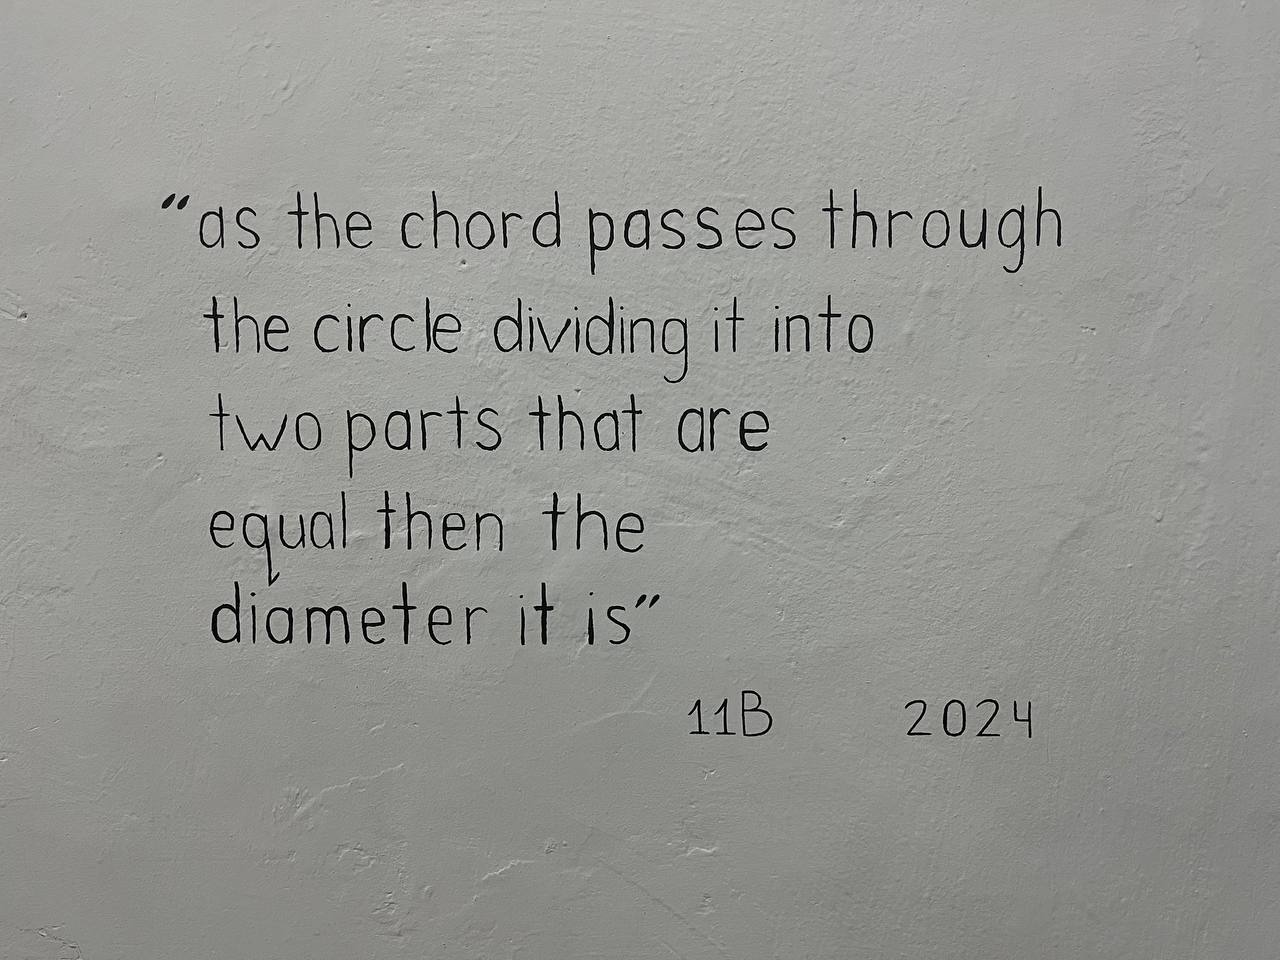 “as the chord passes through
the circle dividing it into
two parts that are
equal then the
diameter it is”
11B 2024